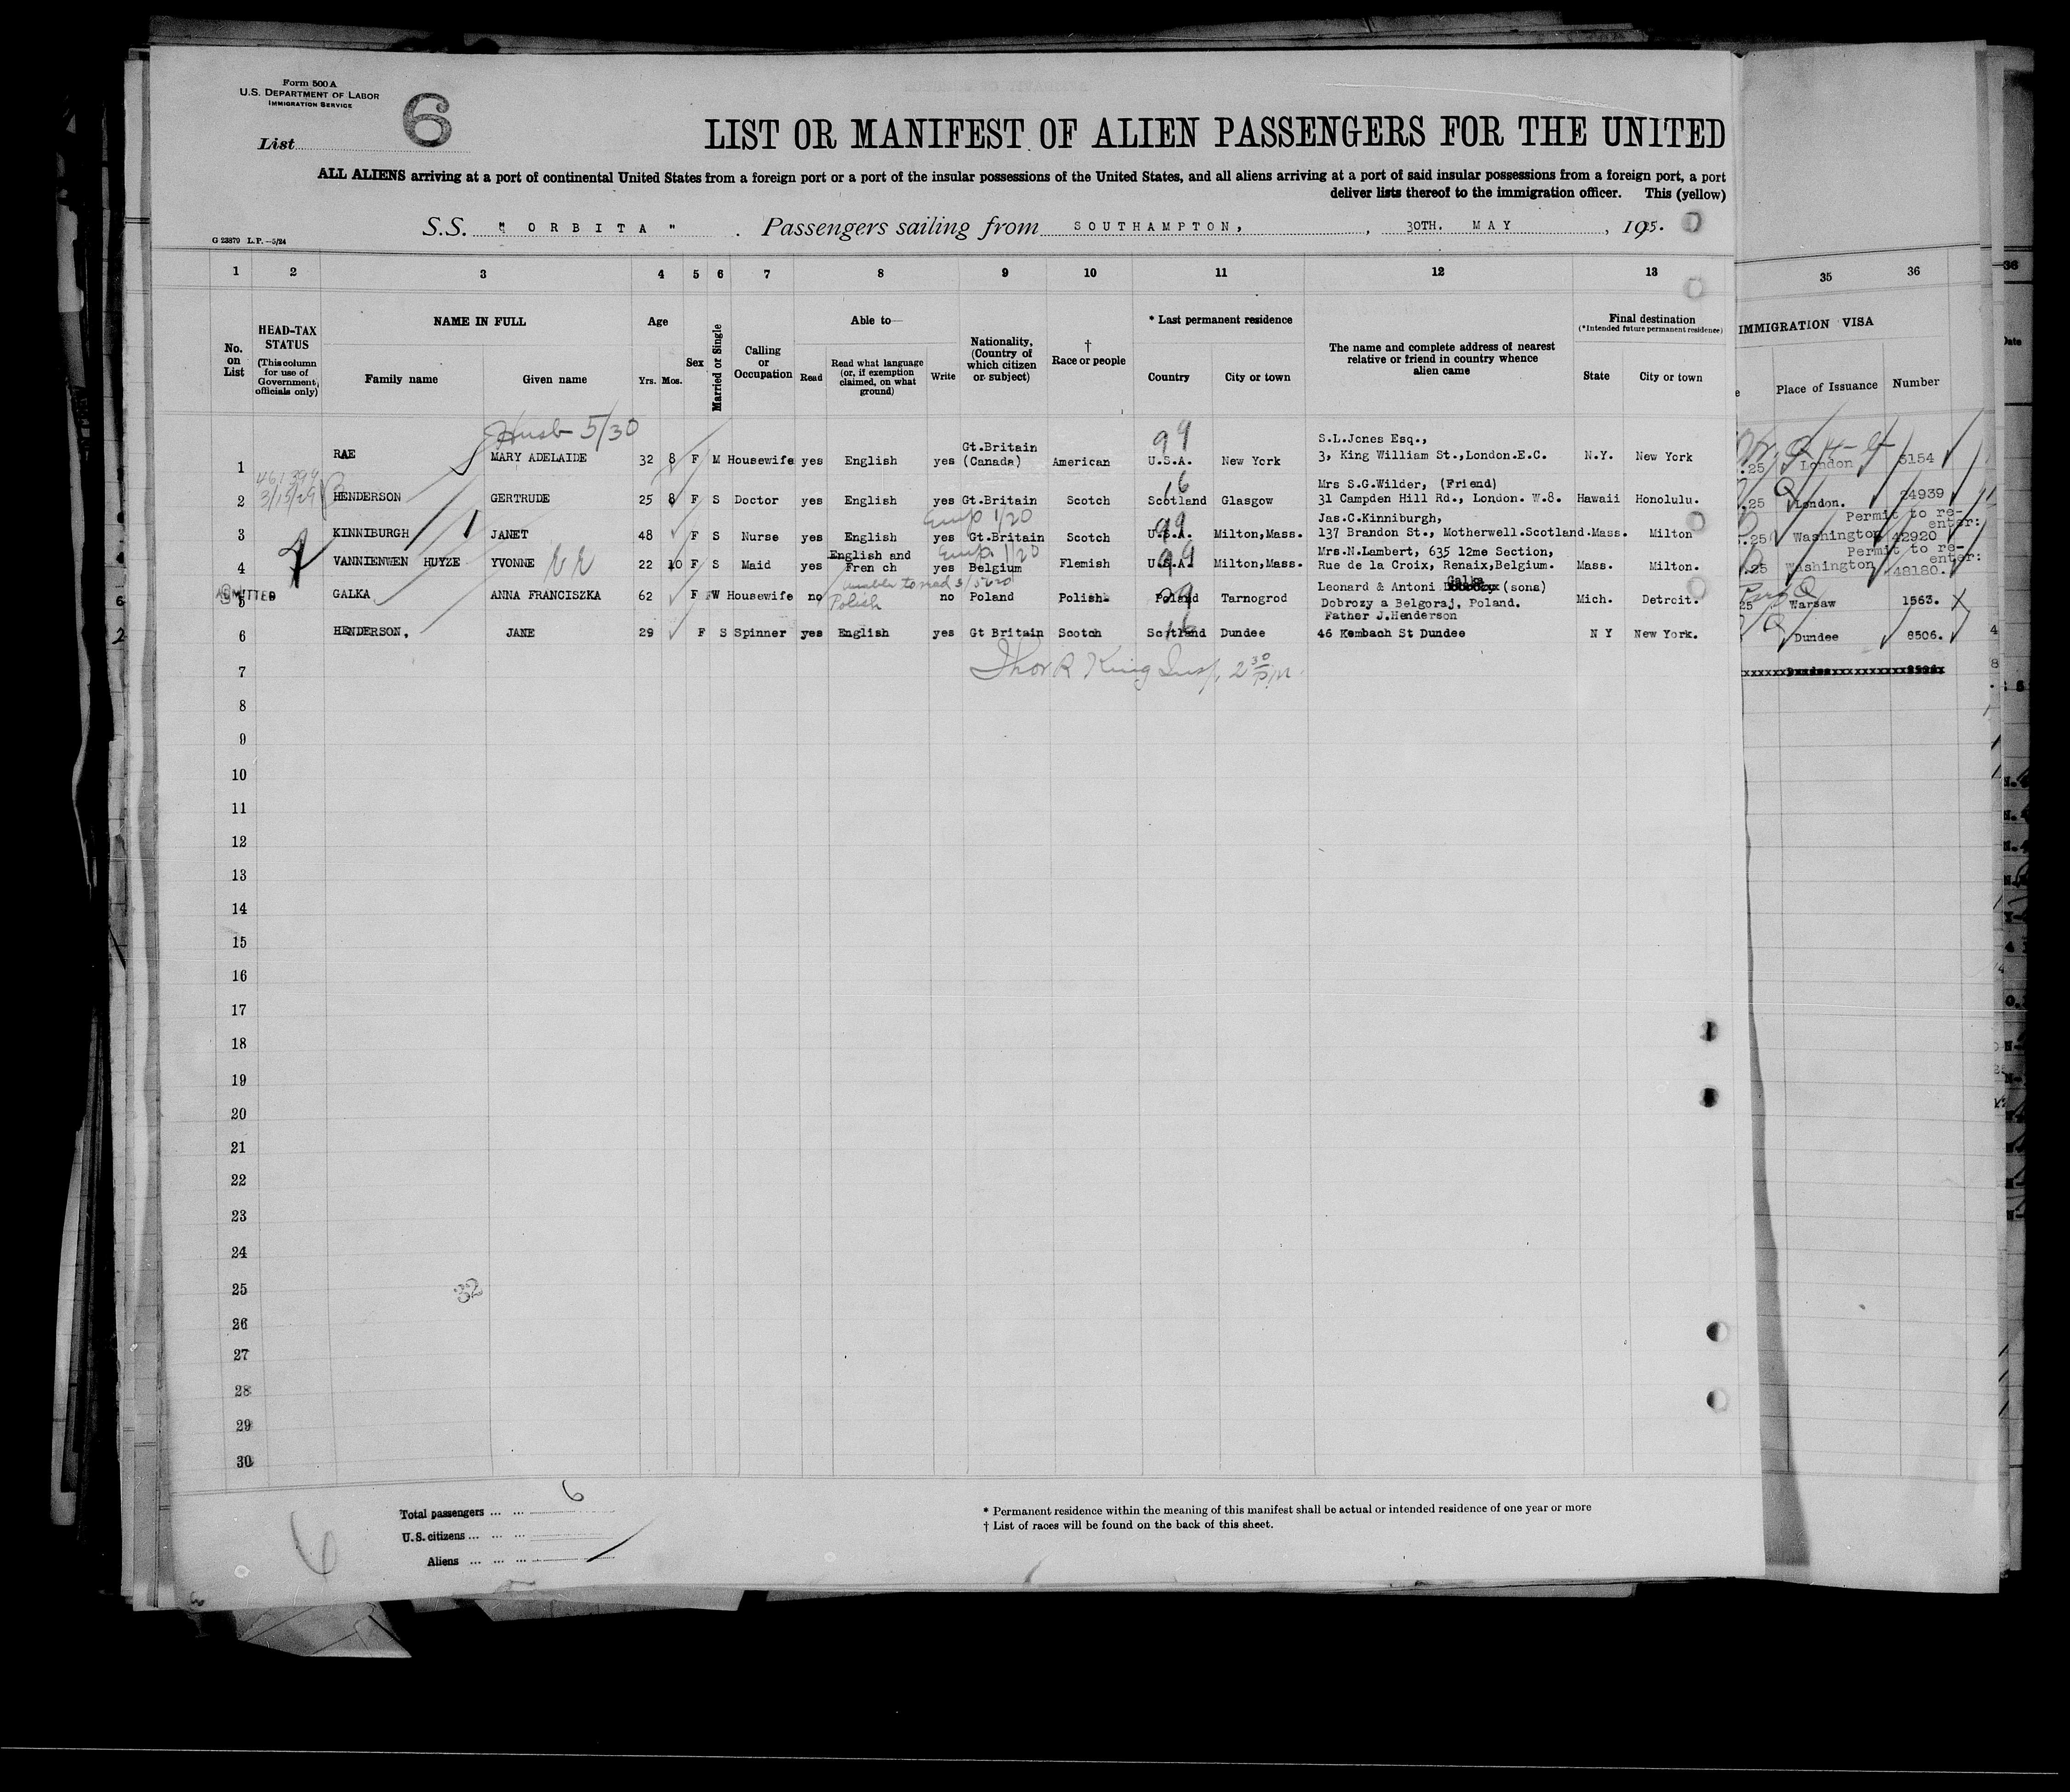 Form 500 A
U.S. DEPARTMENT OF LABOR
IMMIGRATION SERVICE
List 6
LIST OR MANIFEST OF ALIEN PASSENGERS FOR THE UNITED
ALL ALIENS arriving at a port of continental United States from a foreign port or a port of the insular possessions of the United States, and all aliens arriving at a port of said insular possessions from a foreign port, a port
deliver lists thereof to the immigration officer. This (yellow)
S.S. " ORBITA " . Passengers sailing from SOUTHAMPTON, , 30TH. MAY , 1925.
G 23879 L.P.—5/24
1 2 3 4 5 6 7 8 9 10 11 12 13 35 36
No. on List
HEAD-TAX STATUS (This column for use of Government officials only)
NAME IN FULL
Family name Given name
Age
Yrs. Mos.
Sex
Married or Single
Calling or Occupation
Able to—
Read Read what language (or, if exemption claimed, on what ground) Write
Nationality, (Country of which citizen or subject)
† Race or people
* Last permanent residence
Country City or town
The name and complete address of nearest relative or friend in country whence alien came
Final destination
(*Intended future permanent residence)
State City or town
IMMIGRATION VISA
Place of Issuance Number
Husb 5/30
1 RAE MARY ADELAIDE 32 8 F M Housewife yes English yes Gt.Britain (Canada) American U.S.A. New York S.L.Jones Esq., 3, King William St.,London.E.C. N.Y. New York .25 London 5154
99
461394
3/15/29
2 HENDERSON GERTRUDE 25 8 F S Doctor yes English yes Gt.Britain Scotch Scotland Glasgow Mrs S.G.Wilder, (Friend) 31 Campden Hill Rd., London. W.8. Hawaii Honolulu. .25 London. 24939
16
3 KINNIBURGH JANET 48 F S Nurse yes English yes Gt.Britain Scotch U.S.A. Milton,Mass. Jas.C.Kinniburgh, 137 Brandon St., Motherwell.Scotland. Mass. Milton .25 Washington Permit to re-enter: 42920
99
4 VANNIENWEN HUYZE YVONNE 22 10 F S Maid yes English and Fren ch yes Belgium Flemish U.S.A. Milton,Mass. Mrs.N.Lambert, 635 12me Section, Rue de la Croix, Renaix,Belgium. Mass. Milton. .25 Washington Permit to re-enter: 48180.
99
ADMITTED
5 GALKA ANNA FRANCISZKA 62 F W Housewife no Polish no Poland Polish. Poland Tarnogrod Leonard & Antoni Galka (sons) Dobrozy a Belgoraj, Poland. Mich. Detroit. 25 Warsaw 1563.
6 HENDERSON, JANE 29 F S Spinner yes English yes Gt Britain Scotch Scotland Dundee Father J.Henderson 46 Kembach St Dundee N Y New York. Dundee 8506.
Thor R King Insp. 2 30 P.M.
7
8
9
10
11
12
13
14
15
16
17
18
19
20
21
22
23
24
25
32
26
27
28
29
30
Total passengers ... ... 6
U.S. citizens ... ... ...
Aliens ... ... ...
6
* Permanent residence within the meaning of this manifest shall be actual or intended residence of one year or more
† List of races will be found on the back of this sheet.